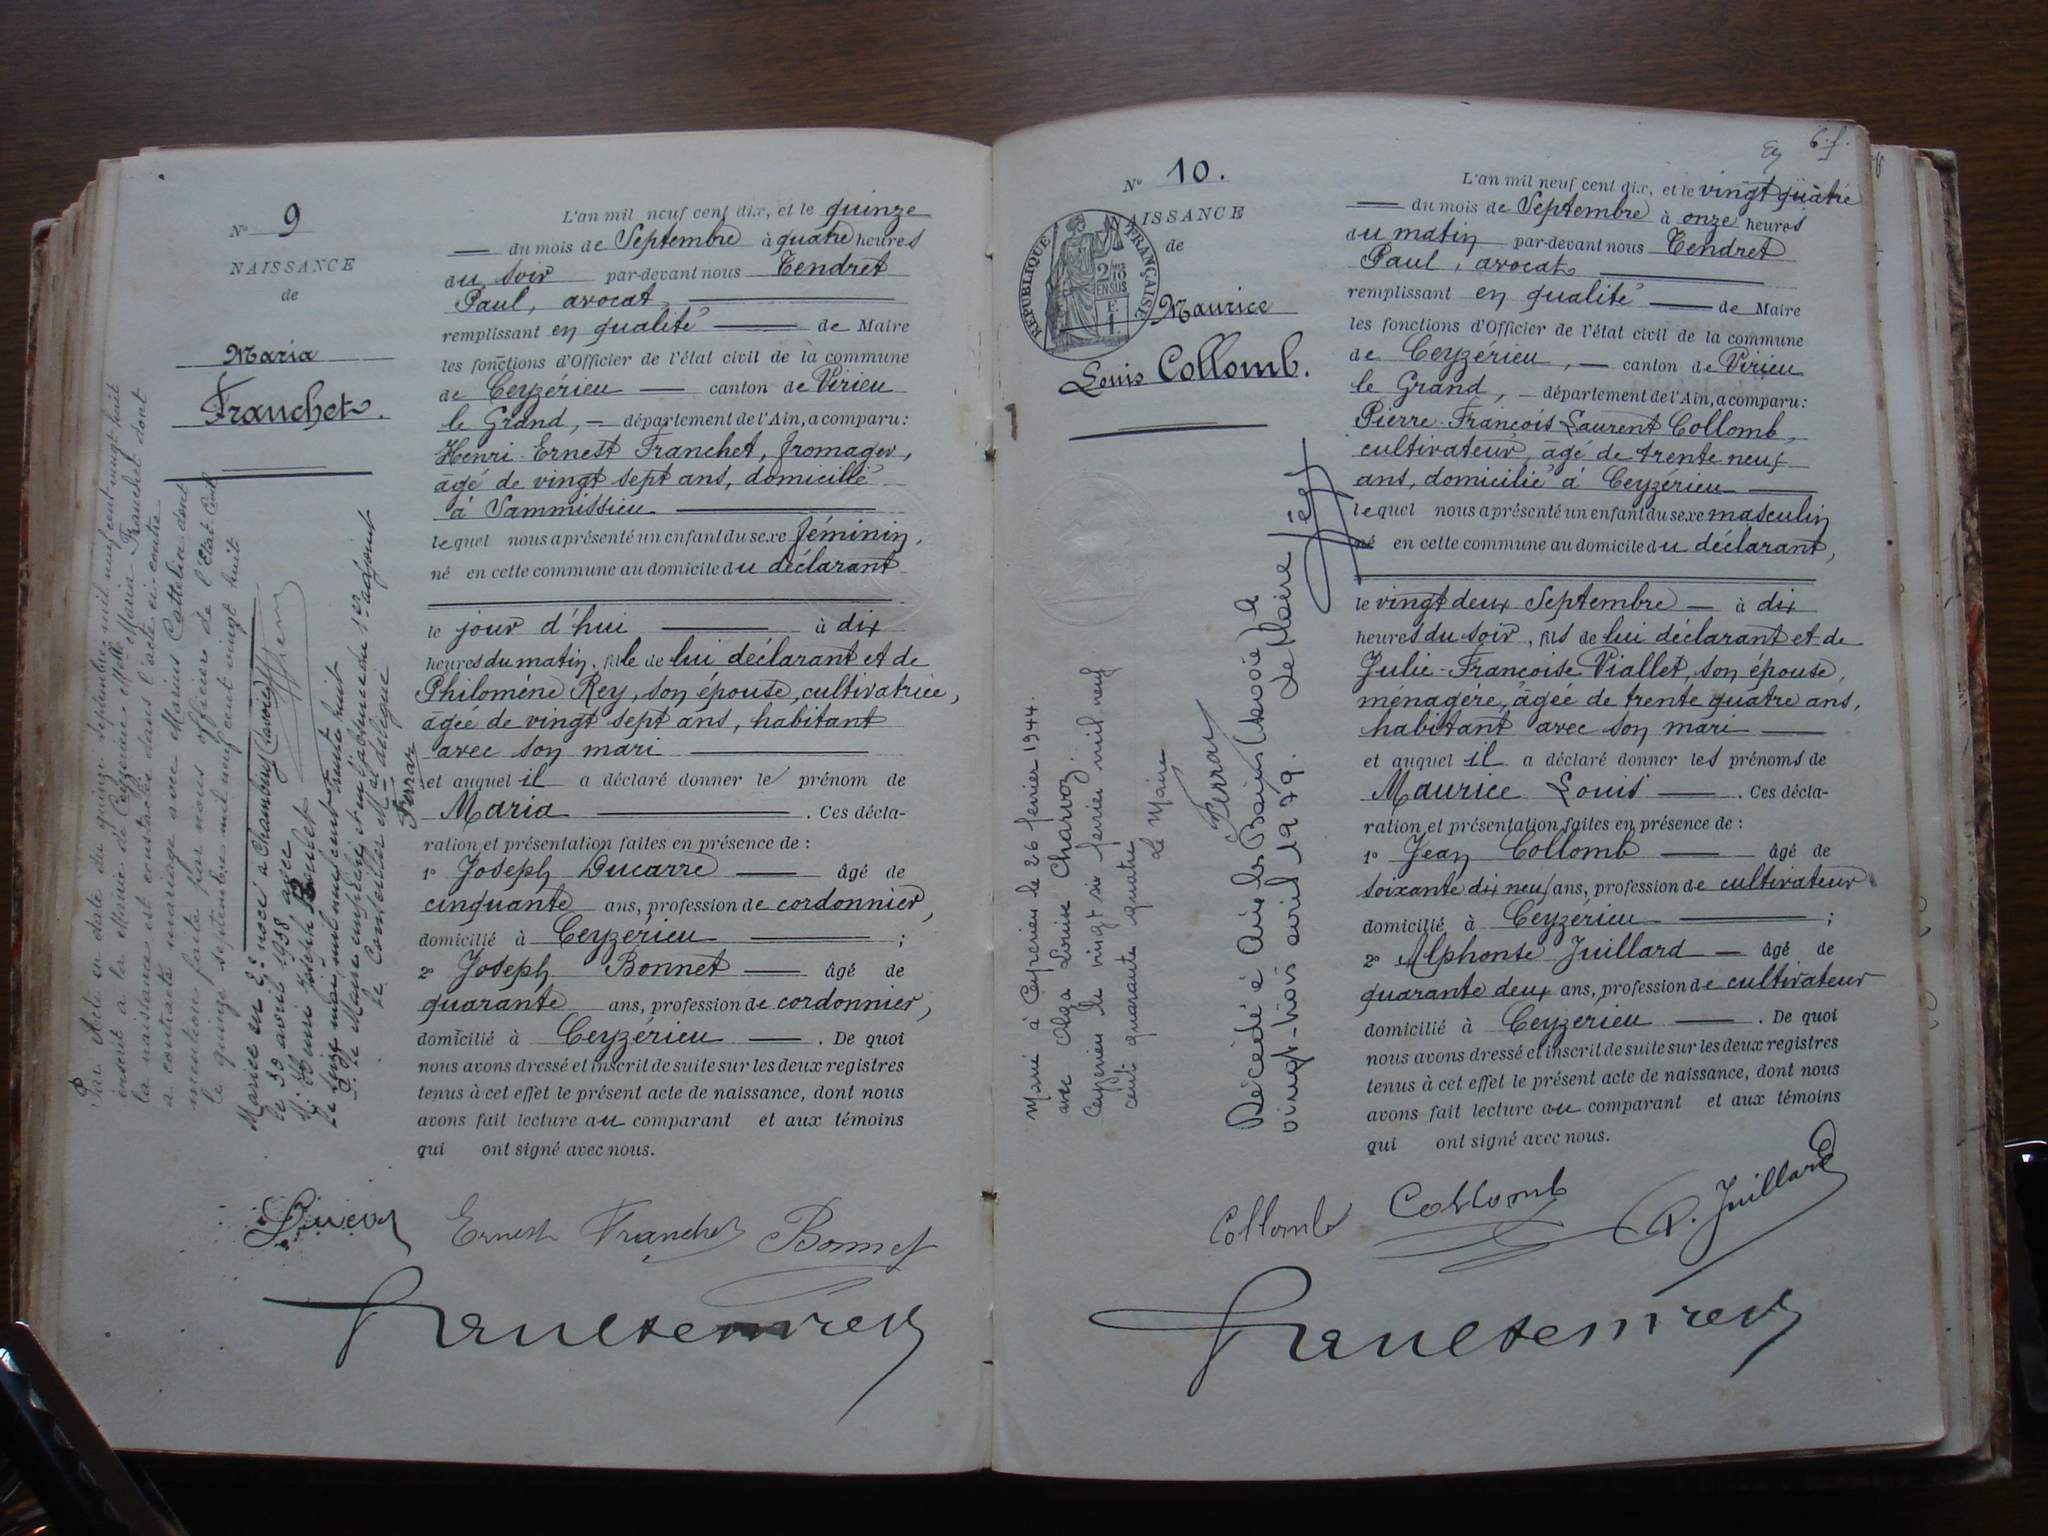 Nº 9
NAISSANCE
de
Maria
Franchet.
L'an mil neuf cent dix, et le quinze
du mois de Septembre à quatre heures
du soir par-devant nous Tendret
Paul, avocat
remplissant en qualité de Maire
les fonctions d'Officier de l'état civil de la commune
de Ceyzérieu canton de Virieu
le Grand, département de l'Ain, a comparu:
Henri-Ernest Franchet, fromager,
âgé de vingt sept ans, domicilié
à Vammissieu
lequel nous a présenté un enfant du sexe féminin,
né en cette commune au domicile du déclarant
le jour d'hui à dix
heures du matin, fille de lui déclarant et de
Philomène Rey, son épouse, cultivatrice,
âgée de vingt sept ans, habitant
avec son mari
et auquel il a déclaré donner le prénom de
Maria . Ces décla-
ration et présentation faites en présence de :
1º Joseph Ducarre âgé de
cinquante ans, profession de cordonnier,
domicilié à Ceyzérieu ;
2º Joseph Bonnet âgé de
quarante ans, profession de cordonnier,
domicilié à Ceyzérieu . De quoi
nous avons dressé et inscrit de suite sur les deux registres
tenus à cet effet le présent acte de naissance, dont nous
avons fait lecture au comparant et aux témoins
qui ont signé avec nous.
Par acte en date du quinze septembre mil neuf cent vingt huit
inscrit à la Mairie de Ceyzérieu Melle Maria Franchet dont
la naissance est constatée dans l'acte ci-contre
a contracté mariage avec Marius Cattelin dont
mention faite par nous officier de l'Etat Civil
le quinze septembre mil neuf cent vingt huit
Mariée en 2e noce à Chambéry (Savoie)
le 30 avril 1938 avec
M. Henri Joseph
Le trois mai mil neuf cent trente huit
P. le Maire empêché et en l'absence du 1er adjoint
Le Conseiller Mal délégué
Ferrar
Ernest Franchet Bonnet
Nº 10.
NAISSANCE
de
Maurice
Louis Collomb.
RÉPUBLIQUE FRANÇAISE
6. f.
L'an mil neuf cent dix, et le vingt quatre
du mois de Septembre à onze heures
du matin par-devant nous Tendret
Paul, avocat
remplissant en qualité de Maire
les fonctions d'Officier de l'état civil de la commune
de Ceyzérieu, canton de Virieu
le Grand, département de l'Ain, a comparu:
Pierre-François Laurent Collomb,
cultivateur, âgé de trente neuf
ans, domicilié à Ceyzérieu
lequel nous a présenté un enfant du sexe masculin
né en cette commune au domicile du déclarant,
le vingt deux Septembre à dix
heures du soir, fils de lui déclarant et de
Julie-Françoise Viallet, son épouse,
ménagère, âgée de trente quatre ans,
habitant avec son mari
et auquel il a déclaré donner les prénoms de
Maurice Louis . Ces décla-
ration et présentation faites en présence de :
1º Jean Collomb âgé de
soixante dix neuf ans, profession de cultivateur
domicilié à Ceyzérieu ;
2º Alphonse Juillard âgé de
quarante deux ans, profession de cultivateur
domicilié à Ceyzérieu . De quoi
nous avons dressé et inscrit de suite sur les deux registres
tenus à cet effet le présent acte de naissance, dont nous
avons fait lecture au comparant et aux témoins
qui ont signé avec nous.
Marié à Ceyzérieu le 26 février 1944.
avec Olga Louise Charvoz.
Ceyzérieu le vingt six février mil neuf
cent quarante quatre
Le Maire
Ferrar
Décédé à Aix les Bains (Savoie) le
vingt-trois avril 1979. Le Maire
Collomb Collomb A. Juillard